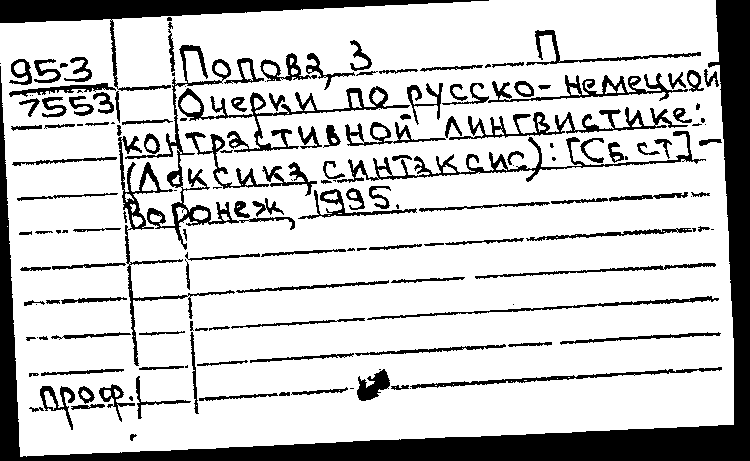 95-3
7553
Попова, З П
Очерки по русско-немецкой
контрастивной лингвистике:
(Лексика, синтаксис): [Сб. ст] -
Воронеж, 1995.
проф.